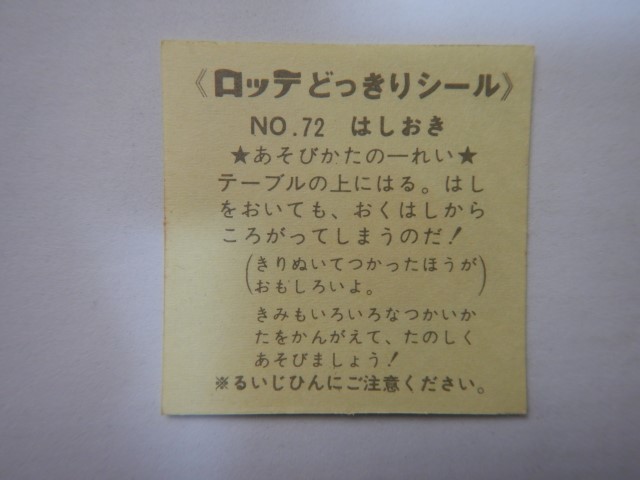 《ロッテどっきりシール》
NO.72 はしおき
★あそびかたの一れい★
テーブルの上にはる。はし
をおいても、おくはしから
ころがってしまうのだ!
(きりぬいてつかったほうが
おもしろいよ。)
きみもいろいろなつかいか
たをかんがえて、たのしく
あそびましょう!
※るいじひんにご注意ください。